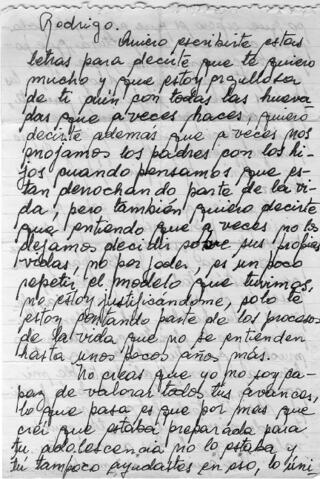 Rodrigo.
Quiero escribirte estas
letras para decirte que te quiero
mucho y que estoy orgullosa
de ti, aún con todas las hueva
das que a veces haces, quiero
decirte además que a veces nos
enojamos los padres con los hi-
jos cuando pensamos que es-
tan derrochando parte de la vi-
da, pero también quiero decirte
que entiendo que a veces no los
dejamos decidir sobre sus propias
vidas, no por joder, es un poco
repetir el modelo que tuvimos,
no estoy justificandome, solo te
estoy contando parte de los procesos
de la vida que no se entienden
hasta unos pocos años más.
No creas que yo no soy ca-
paz de valorar todos tus avances,
lo que pasa es que por mas que
creí que estaba preparada para
tu adolescencia no lo estaba y
tú tampoco ayudastes en eso, lo úni